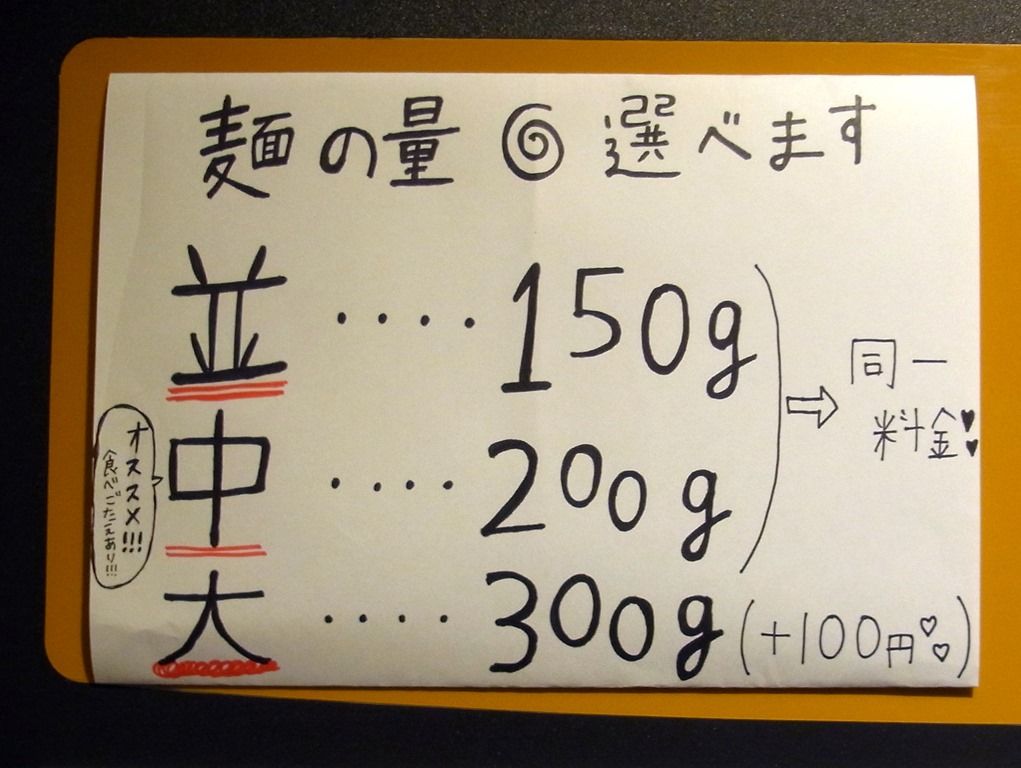 麺の量 選べます
並 ････ 150g
中 ････ 200g
同一
料金
オススメ!!!
食べごたえあり!!!
大 ････ 300g (+100円♡♡)